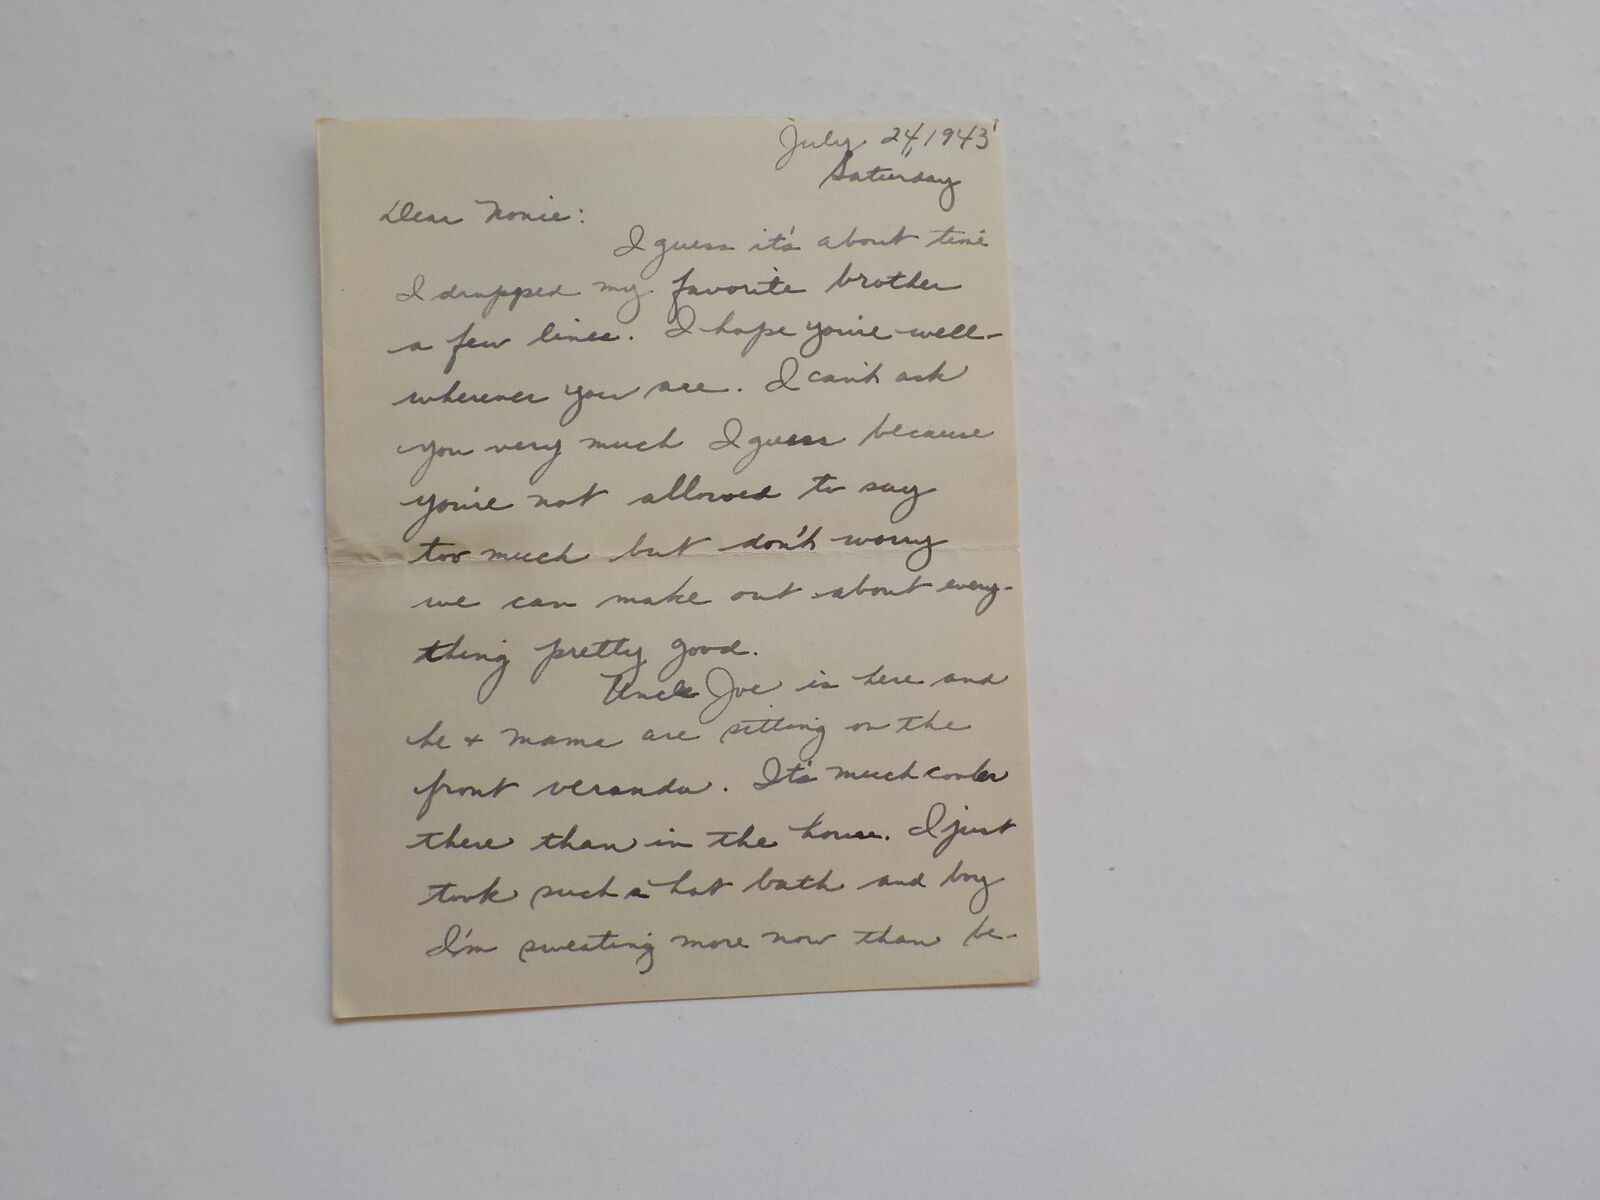 July 24, 1943
Saturday
Dear Nonie:
I guess it's about time
I dropped my favorite brother
a few lines. I hope you're well-
wherever you are. I can't ask
you very much I guess because
you're not allowed to say
too much but don't worry
we can make out about every-
thing pretty good.
Uncle Joe is here and
he + mama are sitting on the
front veranda. It's much cooler
there than in the house. I just
took such a hot bath and boy
I'm sweating more now than be-